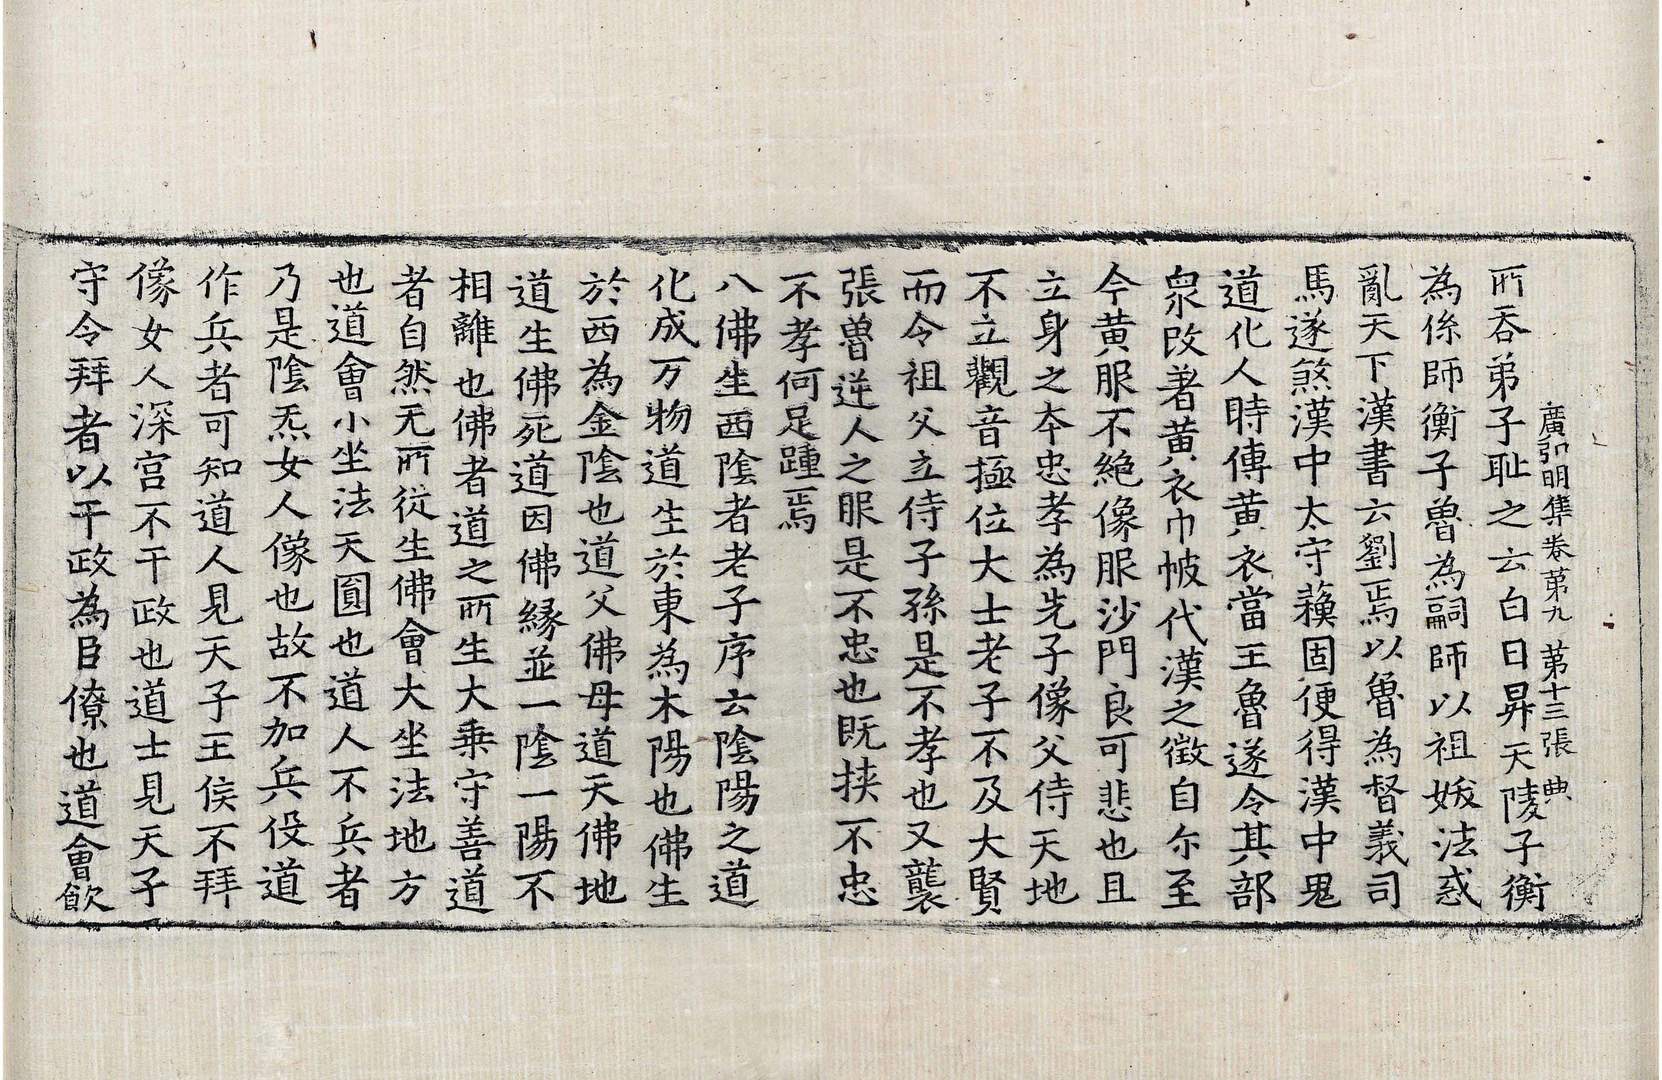 廣弘明集卷第九　第十三張　典
所吞弟子耻之云白日昇天陵子衡
為係師衡子魯為嗣師以祖妭法惑
亂天下漢書云劉焉以魯為督義司
馬遂煞漢中太守蘓固便得漢中鬼
道化人時傳黄衣當王魯遂令其部
眾改著黄衣巾帔代漢之徵自尒至
今黄服不絶像服沙門良可悲也且
立身之本忠孝為先子像父侍天地
不立觀音極位大士老子不及大賢
而令祖父立侍子孫是不孝也又襲
張魯逆人之服是不忠也既挟不忠
不孝何足踵焉
八佛生西陰者老子序云陰陽之道
化成万物道生於東為木陽也佛生
於西為金陰也道父佛母道天佛地
道生佛死道因佛縁並一陰一陽不
相離也佛者道之所生大乗守善道
者自然无所従生佛會大坐法地方
也道會小坐法天圓也道人不兵者
乃是陰炁女人像也故不加兵役道
作兵者可知道人見天子王侯不拜
像女人深宫不干政也道士見天子
守令拜者以干政為臣僚也道會飲